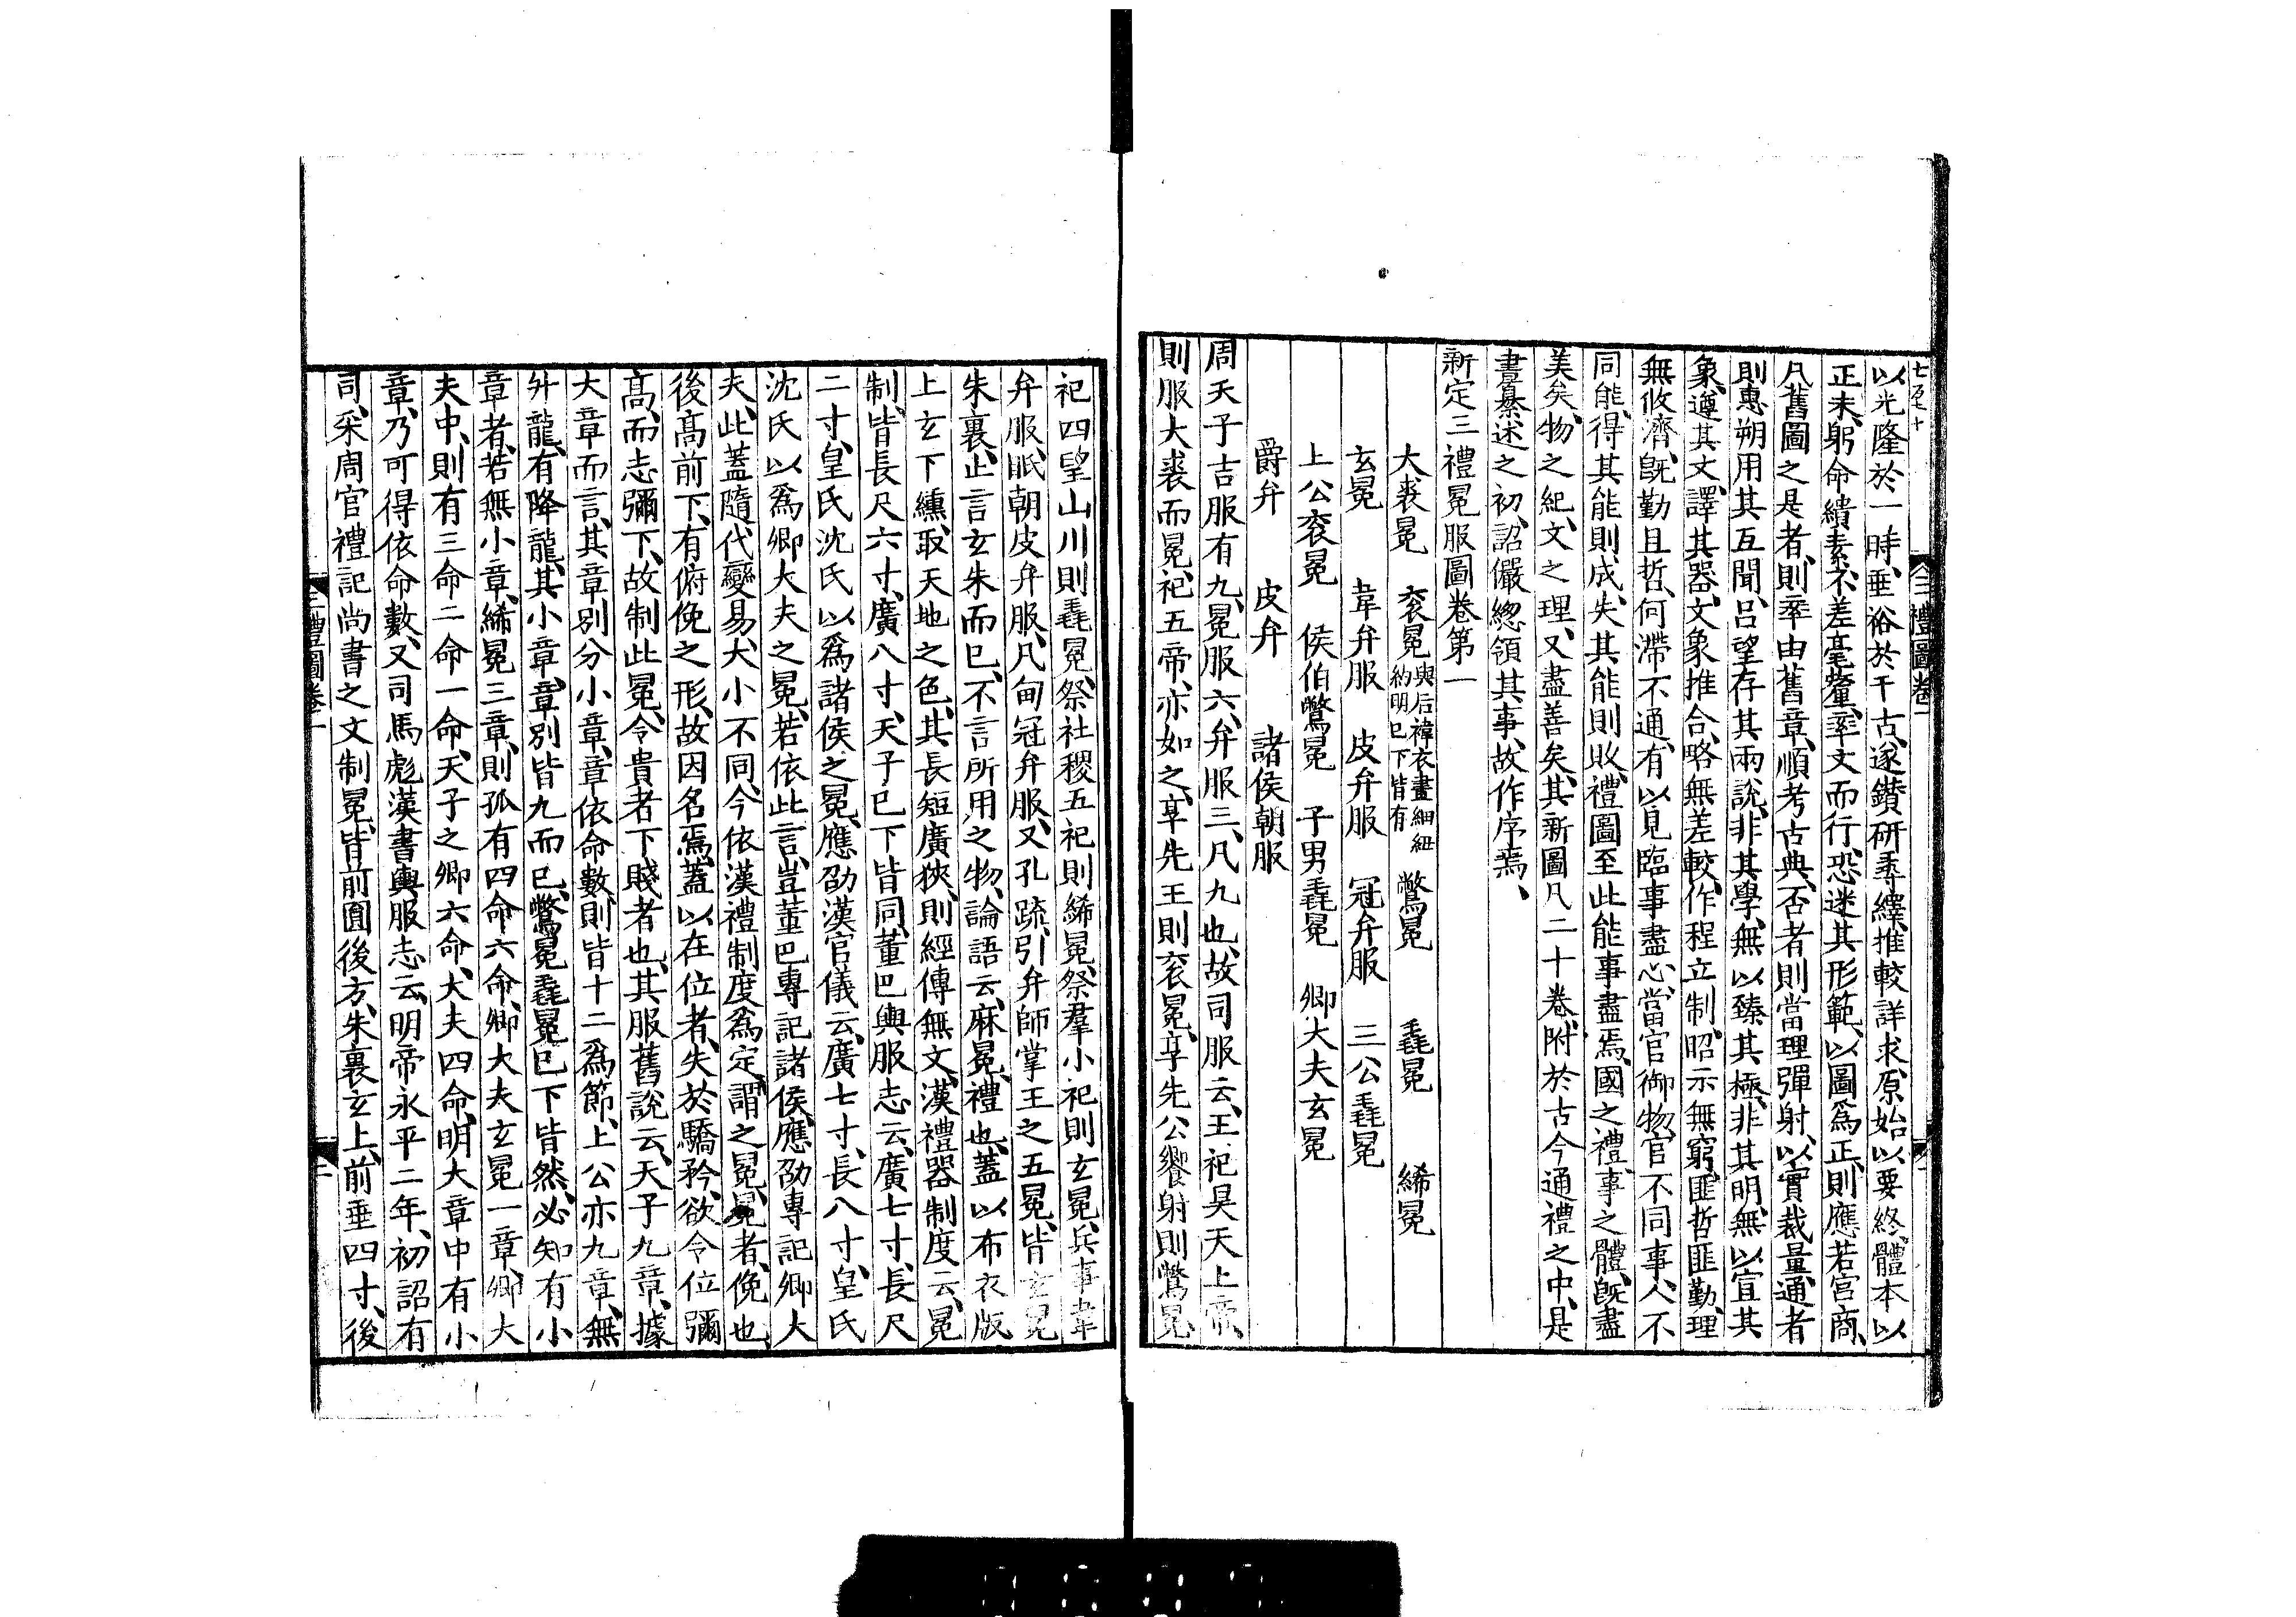 七百七十
三禮圖卷一
以光隆於一時、垂裕於千古、遂鑽研尋繹、推較詳求、原始以要終、體本以
正末、躬命繢素、不差毫釐、率文而行、恐迷其形範、以圖爲正、則應若宮商、
凡舊圖之是者、則率由舊章、順考古典、否者則當理彈射、以實裁量、通者
則惠朔用其互聞、呂望存其兩說、非其學、無以臻其極、非其明、無以宣其
象、遵其文、譯其器、文象推合、略無差較、作程立制、昭示無窮、匪哲匪勤、理
無攸濟、旣勤且哲、何滯不通、有以見臨事盡心、當官御物、官不同事、人不
同能、得其能則成、失其能則敗、禮圖至此能事盡焉、國之禮、事之體、旣盡
美矣、物之紀、文之理、又盡善矣、其新圖凡二十卷、附於古今通禮之中、是
書纂述之初、詔儼總領其事、故作序焉、
新定三禮冕服圖卷第一
大裘冕 袞冕 與后褘衣畫細紐約明已下皆有 鷩冕 毳冕 絺冕
玄冕 韋弁服 皮弁服 冠弁服 三公毳冕
上公袞冕 侯伯鷩冕 子男毳冕 卿大夫玄冕
爵弁 皮弁 諸侯朝服
周天子吉服有九、冕服六、弁服三、凡九也、故司服云、王祀昊天上帝、
則服大裘而冕、祀五帝、亦如之、享先王則袞冕、享先公饗射則鷩冕、
祀四望山川則毳冕、祭社稷五祀則絺冕、祭羣小祀則玄冕、兵事韋
弁服、眡朝皮弁服、凡甸冠弁服、又孔疏、引弁師掌王之五冕、皆玄冕
朱裏、止言玄朱而已、不言所用之物、論語云、麻冕、禮也、蓋以布衣版
上玄下纁、取天地之色、其長短廣狹、則經傳無文、漢禮器制度云、冕
制、皆長尺六寸、廣八寸、天子已下皆同、董巴輿服志云、廣七寸、長尺
二寸、皇氏沈氏以爲諸侯之冕、應劭漢官儀云、廣七寸、長八寸、皇氏
沈氏以爲卿大夫之冕、若依此言、豈董巴專記諸侯、應劭專記卿大
夫、此蓋隨代變易、大小不同、今依漢禮制度爲定、謂之冕、冕者、俛也、
後高前下、有俯俛之形、故因名焉、蓋以在位者、失於驕矜、欲令位彌
高、而志彌下、故制此冕、令貴者下賤者也、其服舊說云、天子九章、據
大章而言、其章別分小章、章依命數、則皆十二爲節、上公亦九章、無
升龍、有降龍、其小章、章別皆九而已、鷩冕毳冕已下皆然、必知有小
章者、若無小章、絺冕三章、則孤有四命六命、卿大夫玄冕一章、卿大
夫中、則有三命二命一命、天子之卿六命、大夫四命、明大章中有小
章、乃可得依命數、又司馬彪漢書輿服志云、明帝永平二年、初詔有
司、采周官禮記尚書之文制冕、皆前圓後方、朱裏玄上、前垂四寸、後
三禮圖卷一
二